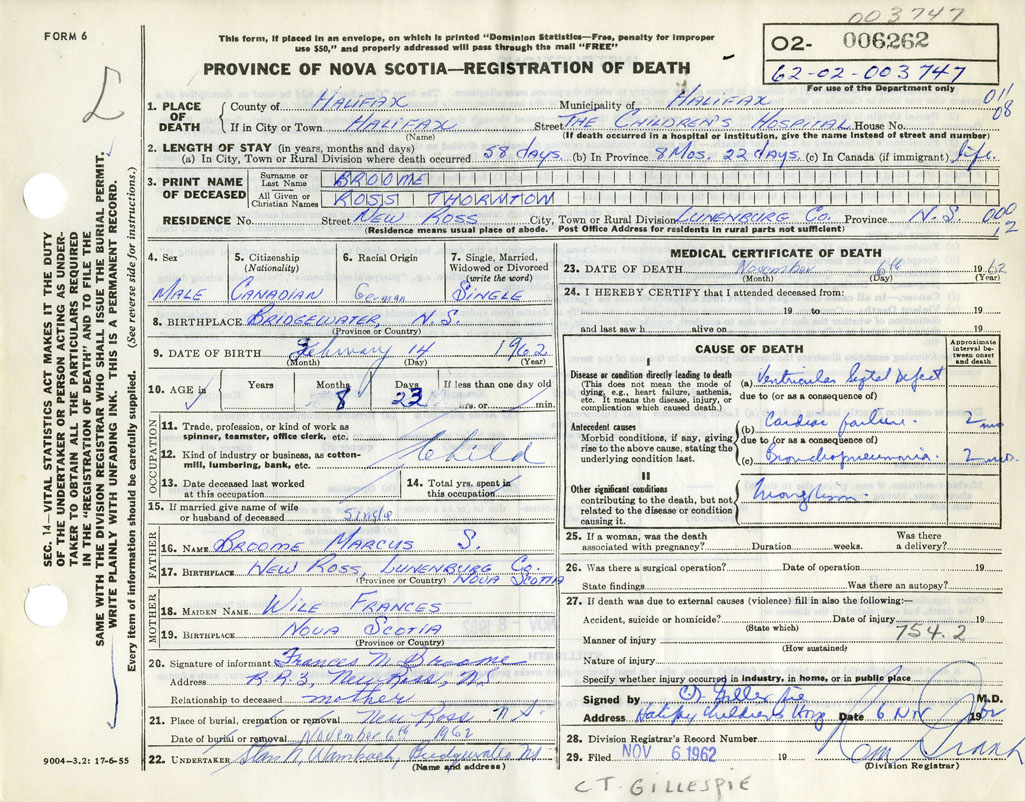 003747
FORM 6
This form, if placed in an envelope, on which is printed "Dominion Statistics—Free, penalty for improper
use $50," and properly addressed will pass through the mail "FREE"
PROVINCE OF NOVA SCOTIA—REGISTRATION OF DEATH
O2- 006262
62-02-003747
For use of the Department only
SEC. 14—VITAL STATISTICS ACT MAKES IT THE DUTY
OF THE UNDERTAKER OR PERSON ACTING AS UNDER-
TAKER TO OBTAIN ALL THE PARTICULARS REQUIRED
IN THE "REGISTRATION OF DEATH" AND TO FILE THE
SAME WITH THE DIVISION REGISTRAR WHO SHALL ISSUE THE BURIAL PERMIT.
WRITE PLAINLY WITH UNFADING INK. THIS IS A PERMANENT RECORD.
Every item of information should be carefully supplied. (See reverse side for instructions.)
1. PLACE OF DEATH
County of HALIFAX Municipality of HALIFAX 011
If in City or Town HALIFAX Street THE CHILDREN'S HOSPITAL House No. 08
(Name) (If death occurred in a hospital or institution, give the name instead of street and number)
2. LENGTH OF STAY (in years, months and days)
(a) In City, Town or Rural Division where death occurred 58 days (b) In Province 8 Mos. 22 days. (c) In Canada (if immigrant) life.
3. PRINT NAME OF DECEASED
Surname or Last Name BROOME
All Given or Christian Names ROSS THORNTON
RESIDENCE No. Street NEW ROSS City, Town or Rural Division LUNENBURG CO. Province N.S. 000
(Residence means usual place of abode. Post Office Address for residents in rural parts not sufficient) 12
4. Sex 5. Citizenship (Nationality) 6. Racial Origin 7. Single, Married, Widowed or Divorced (write the word)
MALE CANADIAN German SINGLE
8. BIRTHPLACE BRIDGEWATER, N.S.
(Province or Country)
9. DATE OF BIRTH February 14 1962
(Month) (Day) (Year)
10. AGE in Years Months Days If less than one day old
8 23 hrs. or min.
OCCUPATION
11. Trade, profession, or kind of work as
spinner, teamster, office clerk, etc.
12. Kind of industry or business, as cotton-
mill, lumbering, bank, etc.
Child
13. Date deceased last worked
at this occupation
14. Total yrs. spent in
this occupation
15. If married give name of wife
or husband of deceased single
FATHER
16. NAME BROOME MARCUS S.
17. BIRTHPLACE NEW ROSS, LUNENBURG CO. NOVA SCOTIA
(Province or Country)
MOTHER
18. MAIDEN NAME WILE FRANCES
19. BIRTHPLACE NOVA SCOTIA
(Province or Country)
20. Signature of informant Frances M. Broome
Address R.R.3, New Ross, N.S
Relationship to deceased mother
21. Place of burial, cremation or removal New Ross N.S.
Date of burial or removal November 6th 1962
22. UNDERTAKER Bridgewater NS
(Name and address)
9004—3.2: 17-6-55
MEDICAL CERTIFICATE OF DEATH
23. DATE OF DEATH November 6th 1962
(Month) (Day) (Year)
24. I HEREBY CERTIFY that I attended deceased from:
19 to 19
and last saw h alive on 19
CAUSE OF DEATH
Approximate interval between onset and death
I
Disease or condition directly leading to death
(This does not mean the mode of
dying, e.g., heart failure, asthenia,
etc. It means the disease, injury, or
complication which caused death.)
(a) Ventricular Septal Defect
due to (or as a consequence of)
Antecedent causes
Morbid conditions, if any, giving
rise to the above cause, stating the
underlying condition last.
(b) Cardiac failure. 2 mo
due to (or as a consequence of)
(c) Bronchopneumonia. 2 mos.
II
Other significant conditions
contributing to the death, but not
related to the disease or condition
causing it.
Mongolism.
25. If a woman, was the death
associated with pregnancy? Duration weeks. Was there
a delivery?
26. Was there a surgical operation? Date of operation 19
State findings Was there an autopsy?
27. If death was due to external causes (violence) fill in also the following:—
Accident, suicide or homicide? Date of injury 19
(State which) 754.2
Manner of injury
(How sustained)
Nature of injury
Specify whether injury occurred in industry, in home, or in public place
Signed by CT Gillespie M.D.
Address Halifax Children's Hosp Date 6 NOV 1962
28. Division Registrar's Record Number
29. Filed NOV 6 1962 19
(Division Registrar)
C.T. GILLESPIE